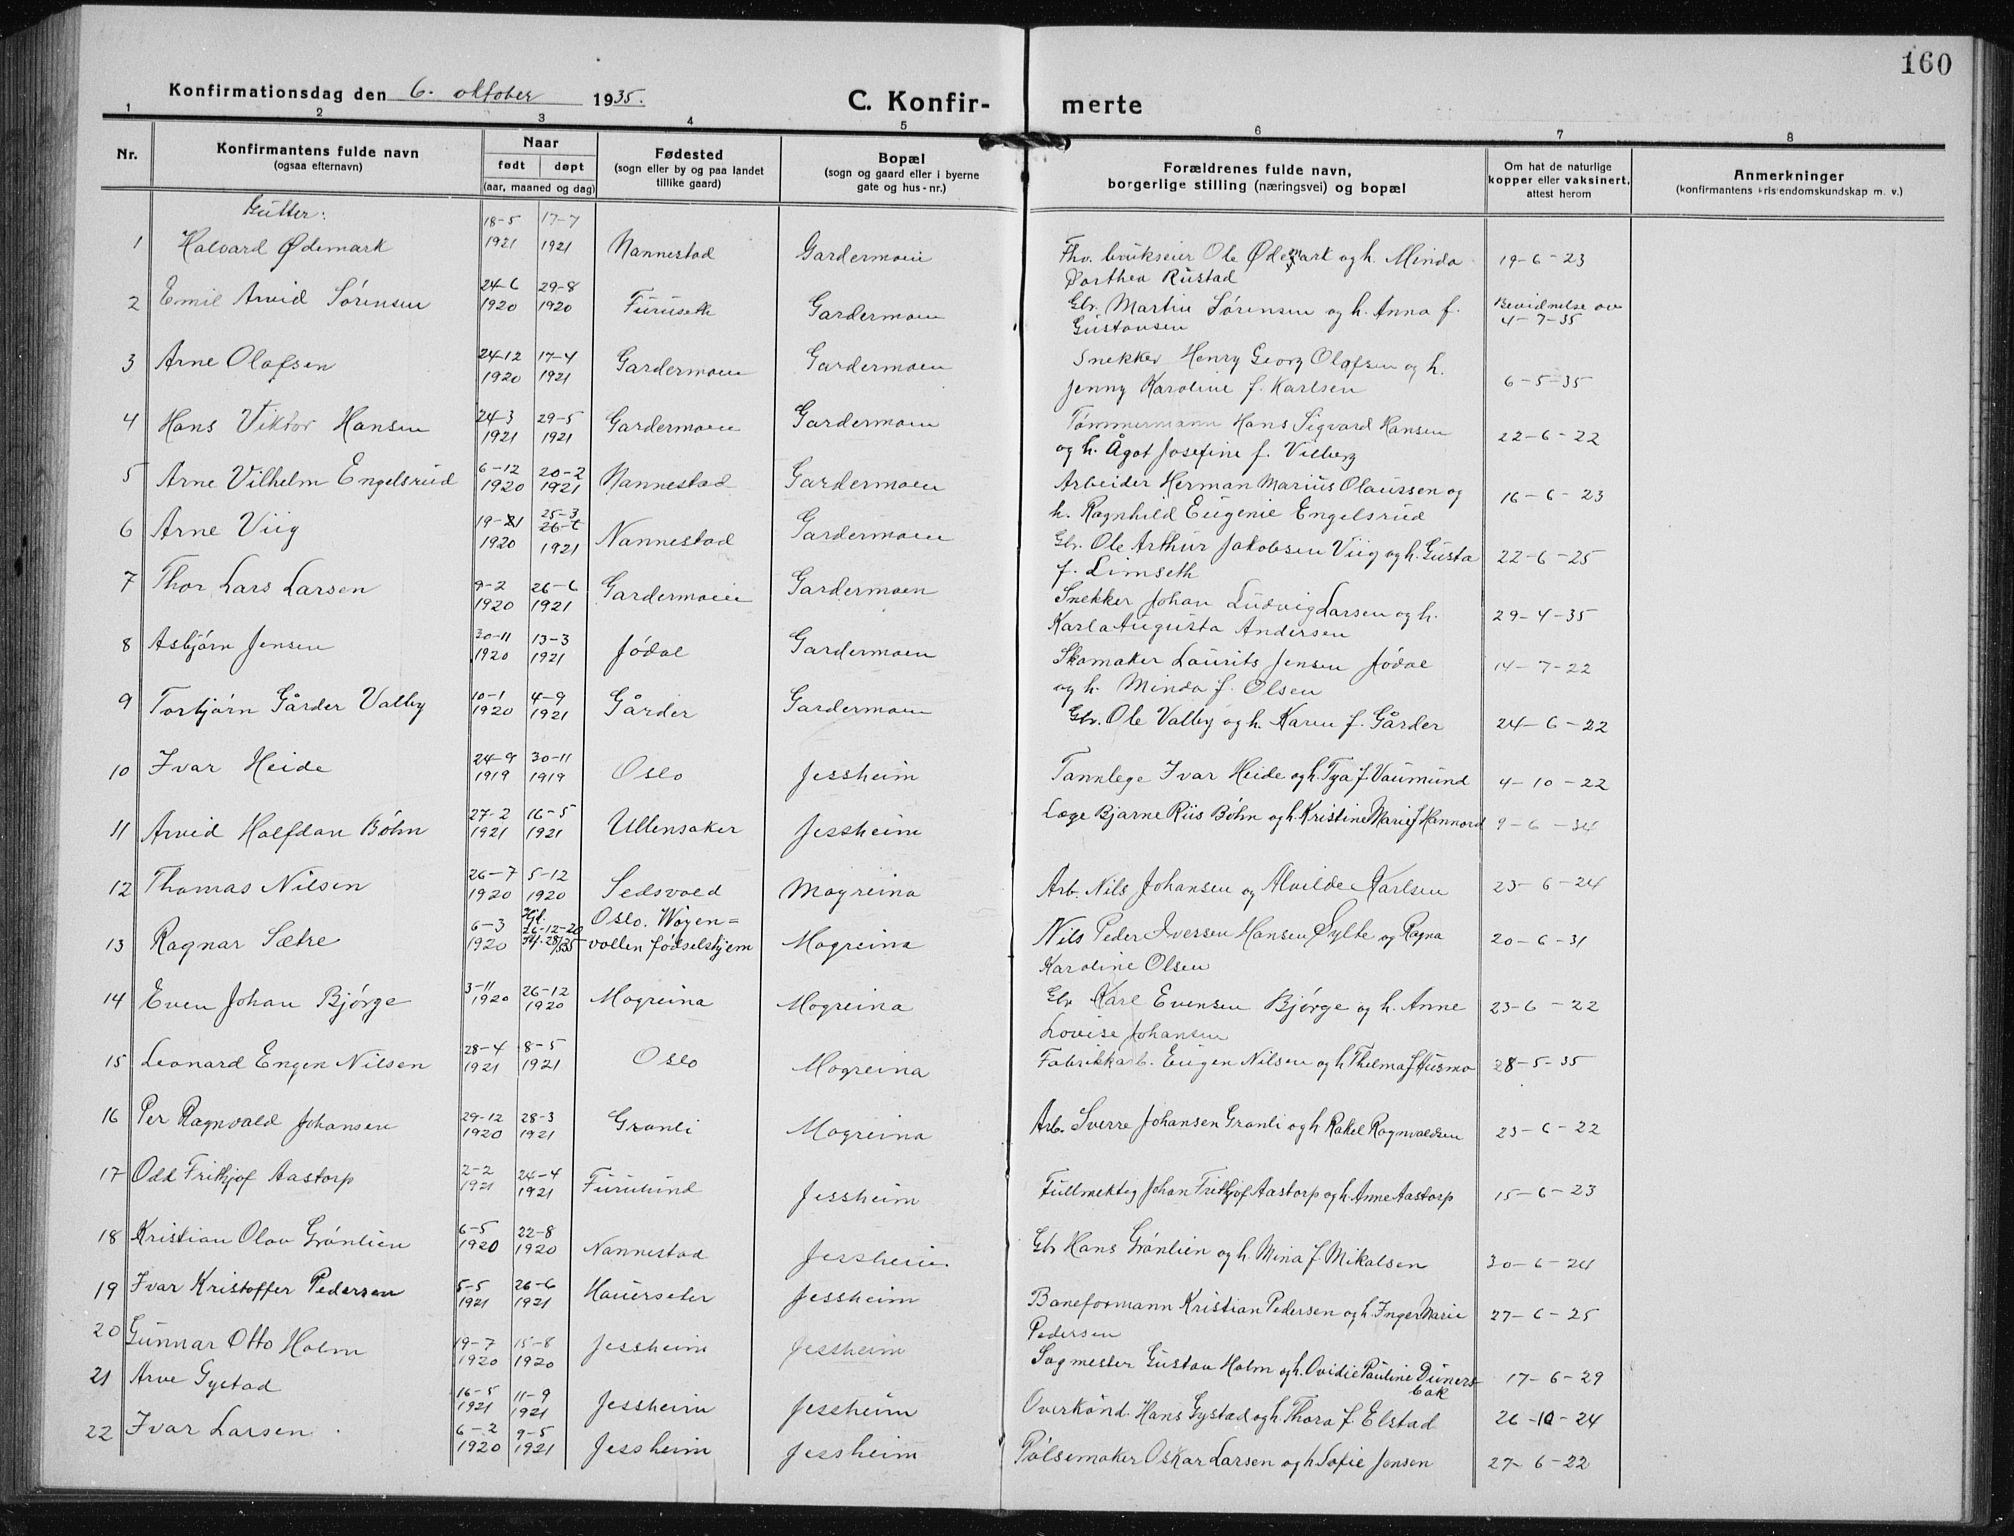 160
Konfirmationsdag den 6. oktober 1935.
C. Konfir- merte
1 2 3 4 5 6 7 8
Nr.
Konfirmantens fulde navn
(ogsaa efternavn)
Naar
født døpt
(aar, maaned og dag)
Fødested
(sogn eller by og paa landet
tillike gaard)
Bopæl
(sogn og gaard eller i byerne
gate og hus-nr.)
Forældrenes fulde navn,
borgerlige stilling (næringsvei) og bopæl
Om hat de naturlige
kopper eller vaksinert,
attest herom
Anmerkninger
(konfirmantens kristendomskundskap m. v.)
Gutter:
18-5 17-7
1 Halvard Ødemark 1921 1921 Nannestad Gardermoen Fhv. brukseier Ole Ødemark og h. Minda 19-6-23
Dorthea Rustad
24-6 29-8
2 Emil Arvid Sørensen 1920 1920 Furuseth Gardermoen Gbr. Martin Sørensen og h. Anna f.
Gustavsen 4-7-35
24-12 17-4
3 Arne Olafsen 1920 1921 Gardermoen Gardermoen Snekker Henry Georg Olafsen og h.
Jenny Karoline f. Karlsen 6-5-35
24-3 29-5
4 Hans Viktor Hansen 1921 1921 Gardermoen Gardermoen Tømmermann Hans Sigvard Hansen 22-6-22
og h. Ågot Josefine f. Vilberg
6-12 20-2
5 Arne Vilhelm Engelsrud 1920 1921 Nannestad Gardermoen Arbeider Herman Marius Olaussen og 16-6-23
h. Ragnhild Eugenie Engelsrud
25-3
6 Arne Viig 1920 1921 Nannestad Gardermoen Gbr. Ole Arthur Jakobsen Viig og h. Gusta 22-6-25
f. Limseth
9-2 26-6
7 Thor Lars Larsen 1920 1921 Gardermoen Gardermoen Snekker Johan Ludvig Larsen og h. 29-4-35
Karla Augusta Andersen
30-11 13-3
8 Asbjørn Jensen 1920 1921 Jødal Gardermoen Skomaker Laurits Jensen Jødal 14-7-22
og h. Minda f. Olsen
10-1 4-9
9 Torbjørn Gårder Valby 1920 1921 Gårder Gardermoen Gbr. Ole Valby og h. Karen f. Gårder 24-6-22
24-9 30-11
10 Ivar Heide 1919 1919 Oslo Jessheim Tannlege Ivar Heide og h. Tya f. Vaumund 4-10-22
27-2 16-5
11 Arvid Halfdan Bøhn 1921 1921 Ullensaker Jessheim Læge Bjarne Riis Bøhn og h. Kristine Marie f Hannord 9-6-34
26-7 5-12
12 Thomas Nilsen 1920 1920 Sedsvold Mogreina Arb. Nils Johansen og Alvilde Karlsen 23-6-24
Hj.
6-3 26-12-20 Oslo. Wøyen=
13 Ragnar Sætre 1920 vollen fødselshjem Mogreina Nils Peder Iversen Hansen Sylte og Ragna 20-6-31
Karoline Olsen
3-11 26-12
14 Even Johan Bjørge 1920 1920 Mogreina Mogreina Gbr Karl Evensen Bjørge og h. Anne 23-6-22
Lovise Johansen
28-4 8-5
15 Leonard Engen Nilsen 1921 1921 Oslo Mogreina Fabrikkarb. Eugen Nilsen og h Thelma f Husmo 28-5-35
29-12 28-3
16 Per Ragnvald Johansen 1920 1921 Granli Mogreina Arb. Sverre Johansen Granli og h Rakel Ragnvaldsen 23-6-22
2-2 24-4
17 Odd Frithjof Aastorp 1921 1921 Furulund Jessheim Fullmektig Johan Frithjof Aastorp og h. Anne Aastorp 15-6-23
6-5 22-8
18 Kristian Olav Grønlien 1920 1920 Nannestad Jessheim Gbr Hans Grønlien og h. Mina f. Mikalsen 30-6-24
5-5 26-6
19 Ivar Kristoffer Pedersen 1921 1921 Hauerseter Jessheim Baneformann Kristian Pedersen og h. Inger Marie 27-6-25
Pedersen
19-7 15-8
20 Gunnar Otto Holm 1920 1920 Jessheim Jessheim Sagmester Gustav Holm og h. Ovidie Pauline Duners 17-6-29
bak
16-5 11-9
21 Arve Gystad 1921 1921 Jessheim Jessheim Overkond. Hans Gystad og h. Thora f. Elstad 26-10-24
6-2 9-5
22 Ivar Larsen 1920 1921 Jessheim Jessheim Pølsemaker Oskar Larsen og h Sofie Jensen 27-6-22